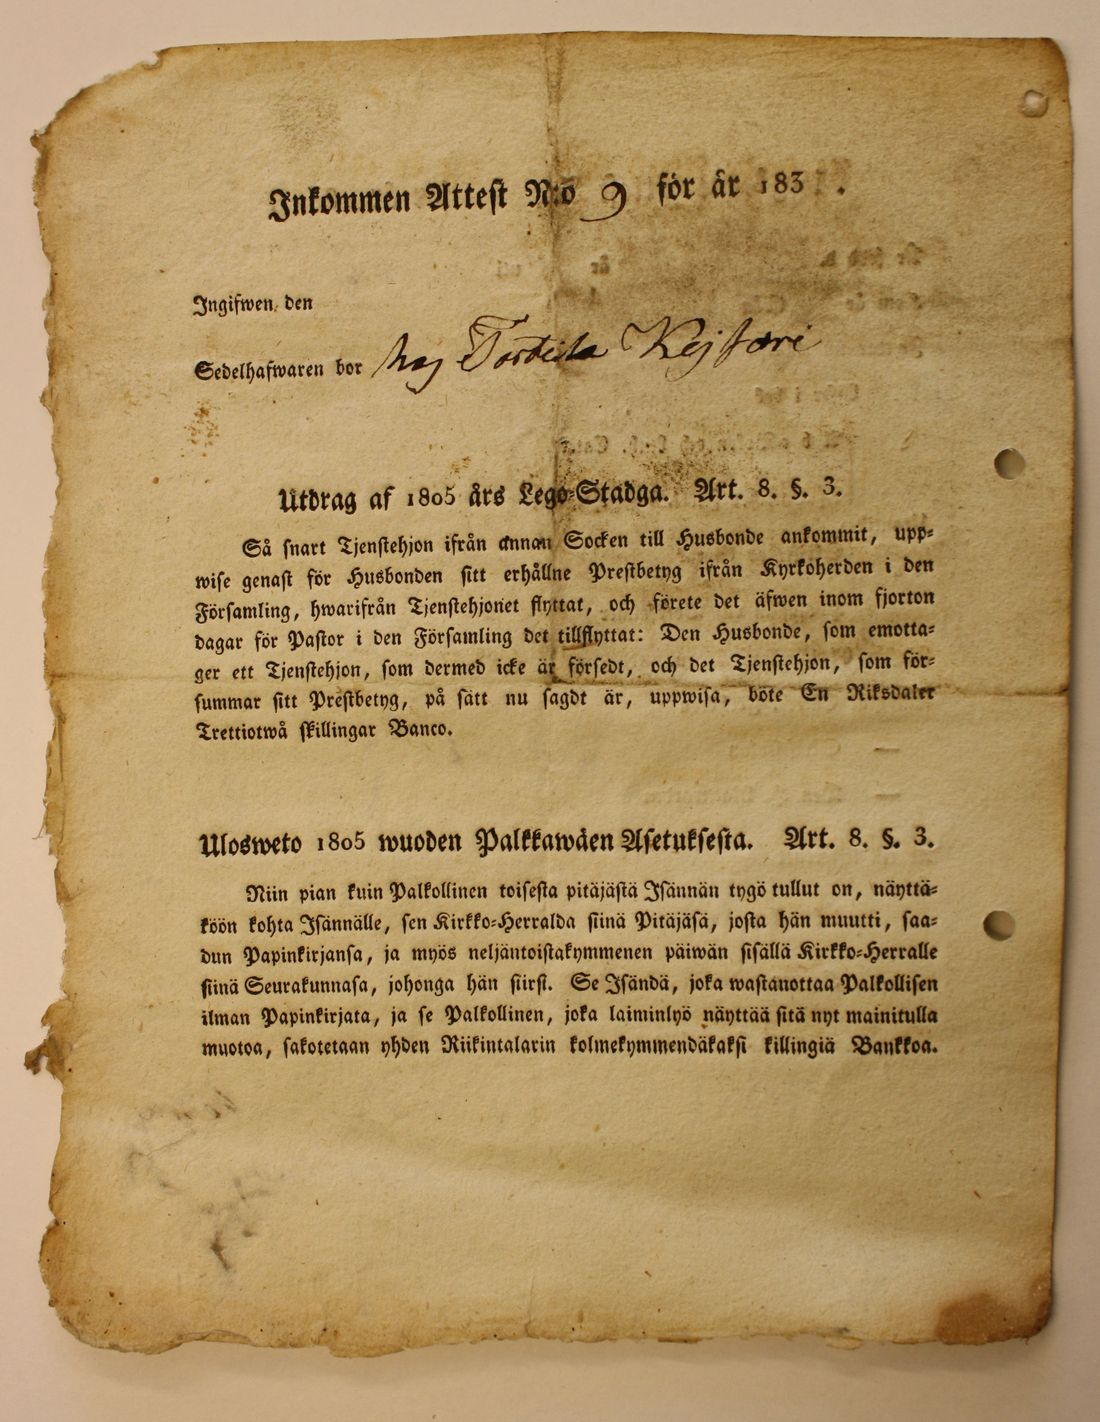 Inkommen Attest N:o 9 för år 183 .
Ingifwen den
Sedelhafwaren bor hoj Kejsari
Utdrag af 1805 års Lego-Stadga. Art. 8. §. 3.
Så snart Tjenstehjon ifrån annan Socken till Husbonde ankommit, upp-
wise genast för Husbonden sitt erhållne Prestbetyg ifrån Kyrkoherden i den
Församling, hwarifrån Tjenstehjonet flyttat, och förete det äfwen inom fjorton
dagar för Pastor i den Församling det tillflyttat: Den Husbonde, som emotta-
ger ett Tjenstehjon, som dermed icke är försedt, och det Tjenstehjon, som för-
summar sitt Prestbetyg, på sätt nu sagdt är, uppwisa, böte En Riksdaler
Trettiotwå skillingar Banco.
Ulosweto 1805 wuoden Palkkawäen Asetuksesta. Art. 8. §. 3.
Niin pian kuin Palkollinen toisesta pitäjästä Isännän tygö tullut on, näyttä-
köön kohta Isännälle, sen Kirkko-Herralda siinä Pitäjäsä, josta hän muutti, saa-
dun Papinkirjansa, ja myös neljäntoistakymmenen päiwän sisällä Kirkko-Herralle
siinä Seurakunnasa, johonga hän siirst. Se Isändä, joka wastanottaa Palkollisen
ilman Papinkirjata, ja se Palkollinen, joka laiminlyö näyttää sitä nyt mainitulla
muotoa, sakotetaan yhden Riikintalarin kolmekymmendäkaksi killingiä Bankkoa.